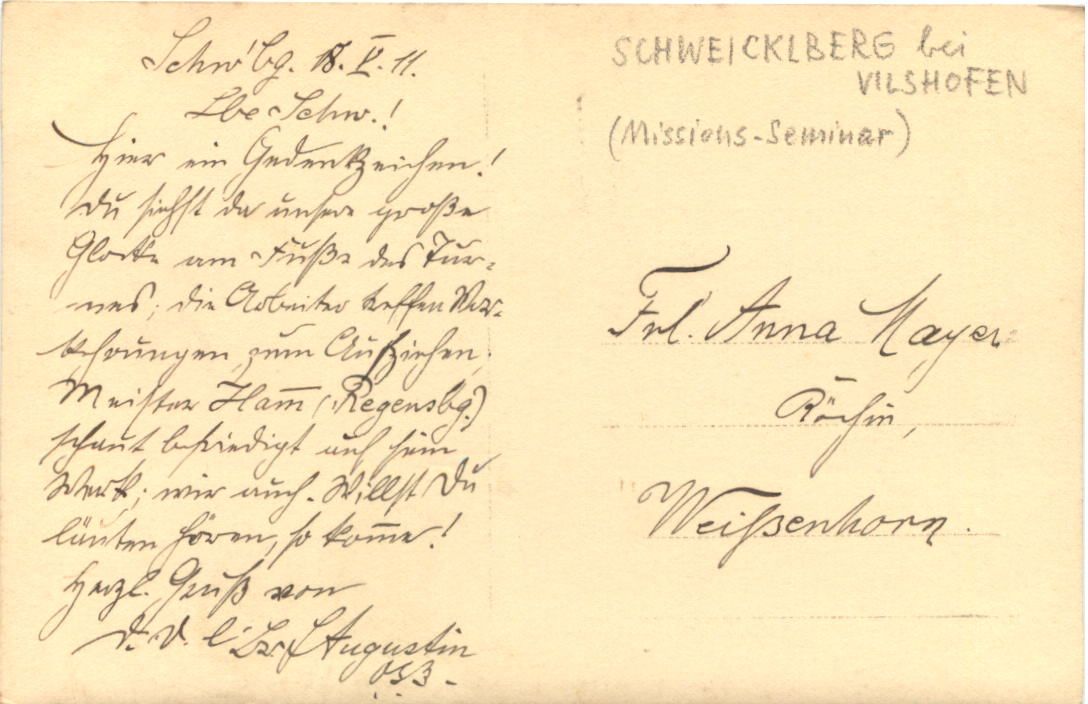 Schw'bg. 18. V. 11.
Lbe Schw.!
Hier ein Gedenkzeichen!
Du siehst da unsere große
Glocke am Fuße des Tur-
mes; die Arbeiter treffen Vor-
kehrungen zum Aufziehen.
Meister Ham̅ (Regensbg.)
schaut befriedigt auf sein
Werk; wir auch. Willst Du
läuten hören, so kom̅e!
Herzl. Gruß von
Augustin
OSB.
SCHWEICKLBERG bei
VILSHOFEN
(Missions-Seminar)
Frl. Anna Mayer
Köchin,
Weißenhorn.